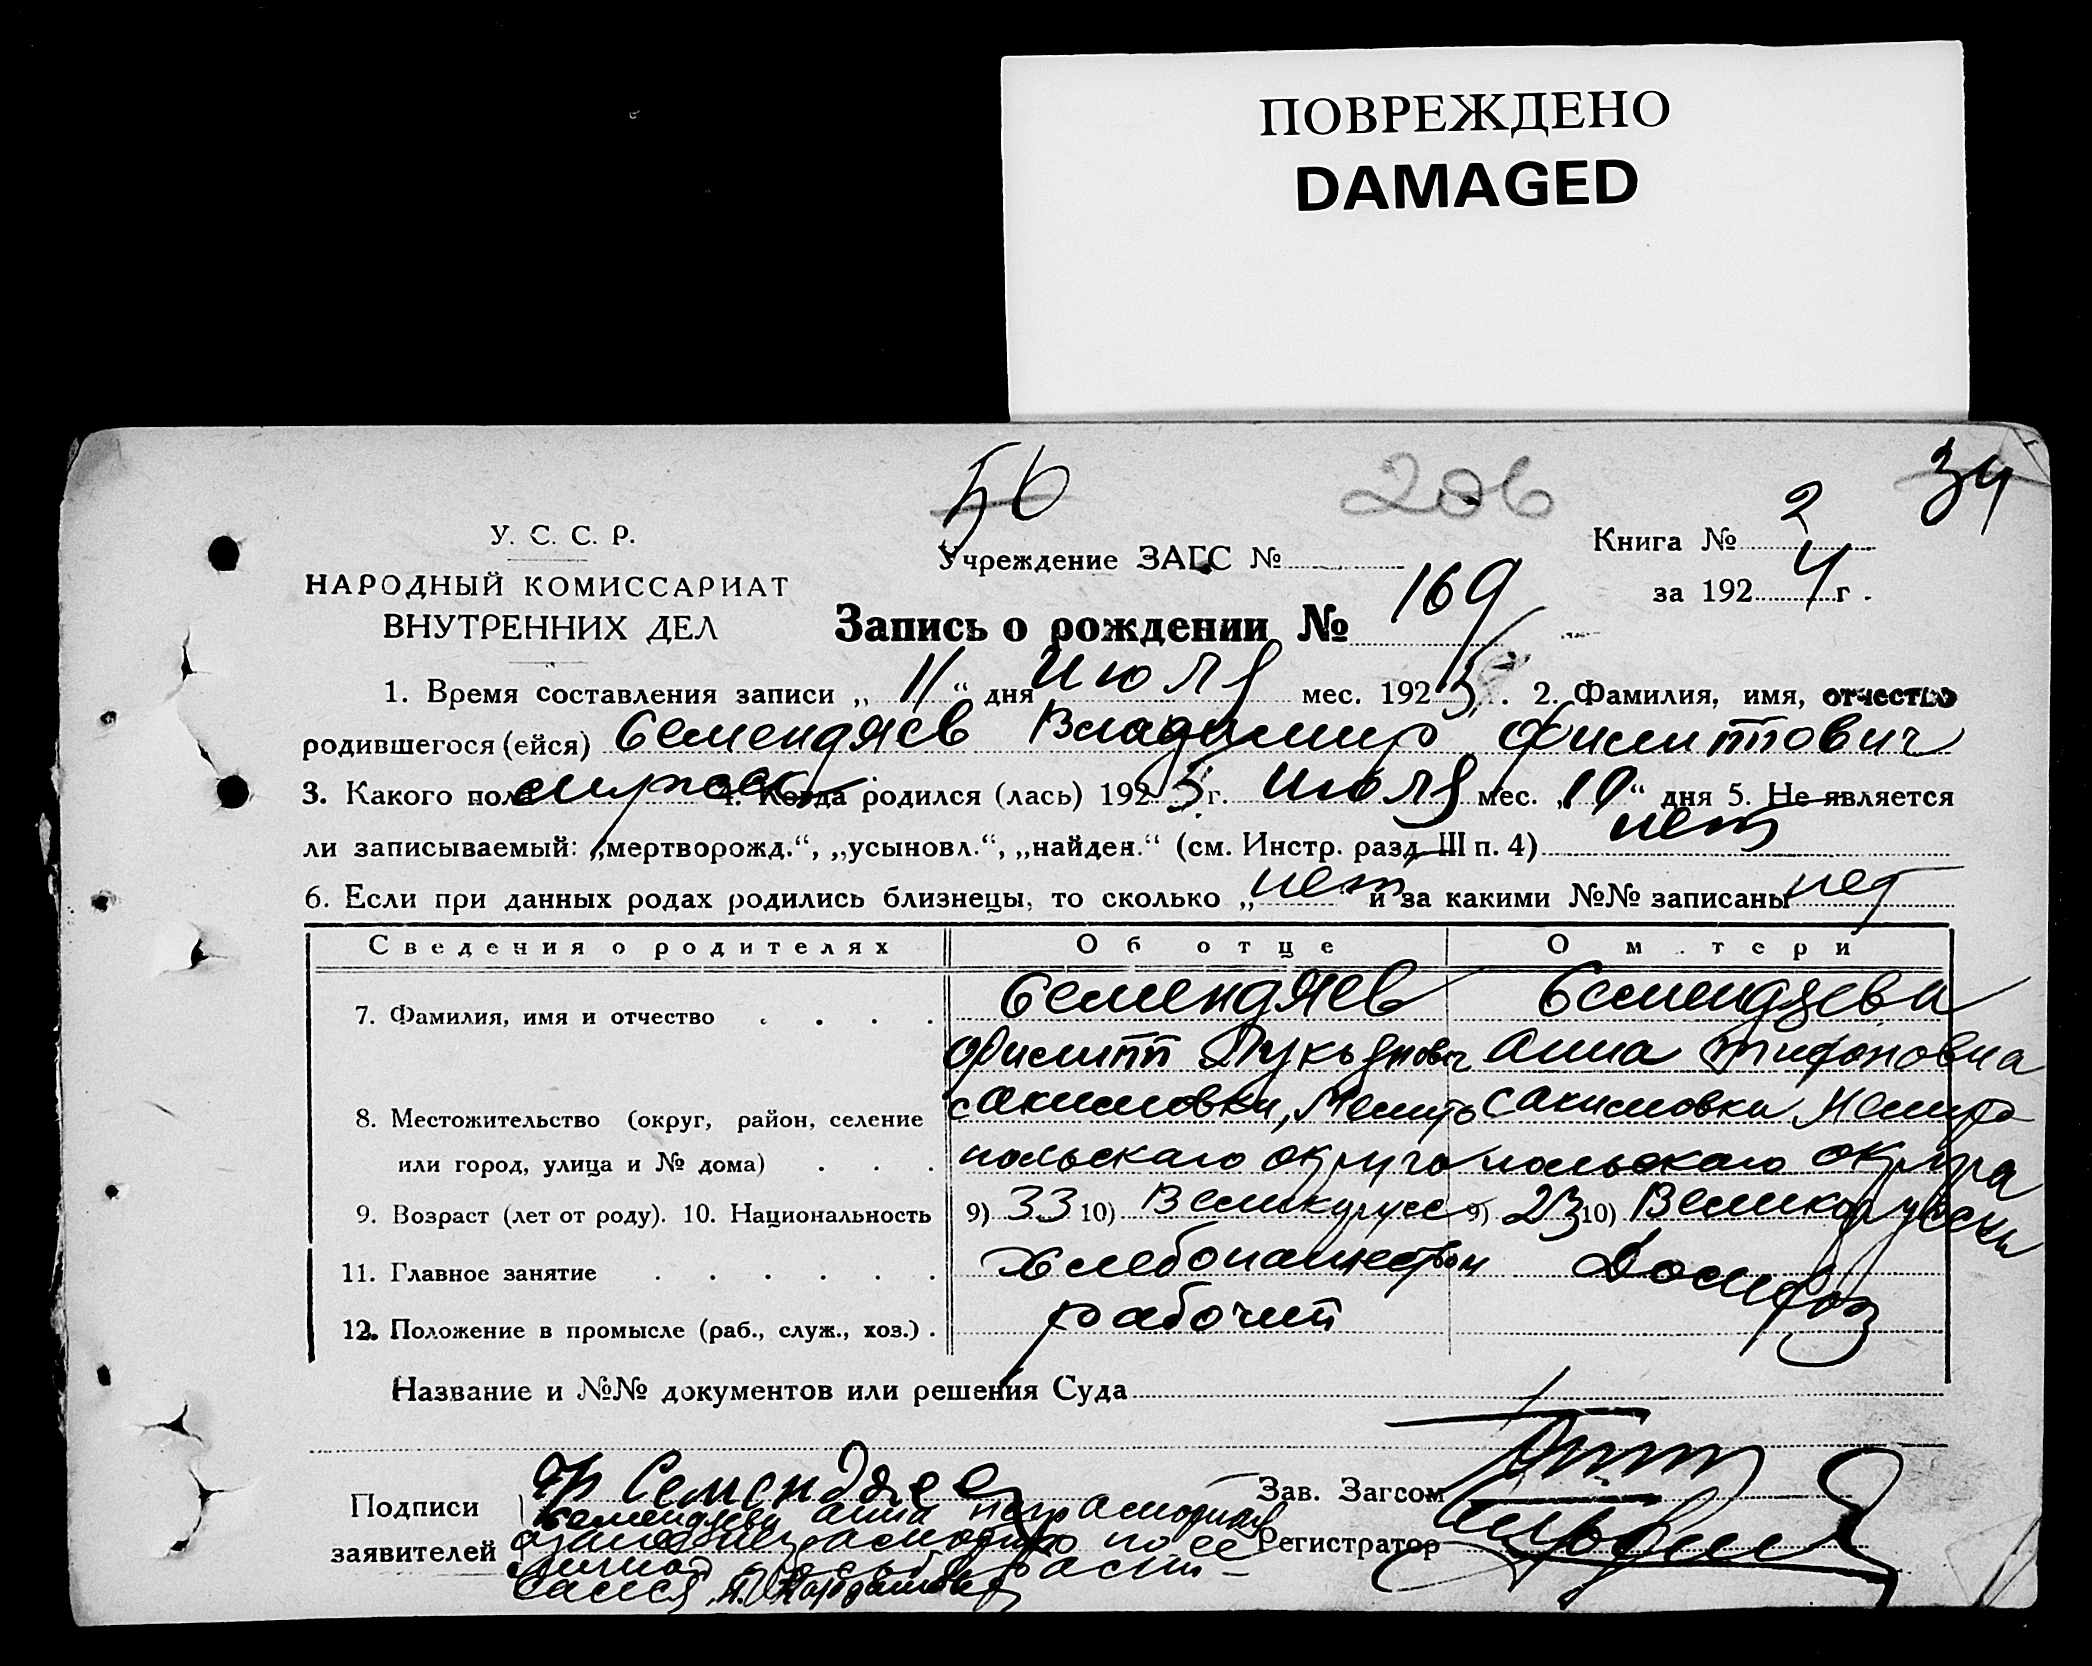 ПОВРЕЖДЕНО
DAMAGED
56
206
34
У. С. С. Р.
НАРОДНЫЙ КОМИССАРИАТ
ВНУТРЕННИХ ДЕЛ
Учреждение ЗАГС №
Книга № 2
за 1924 г.
Запись о рождении № 169
1. Время составления записи „ 11 “ дня Июля мес. 1925 . 2. Фамилия, имя, отчество
родившегося (ейся) Семендяев Владимир Филиппович
3. Какого пола мужск 4. Когда родился (лась) 1925 г. Июля мес. „10“ дня 5. Не является
ли записываемый: „мертворожд.“, „усыновл.“, „найден.“ (см. Инстр. разд III п. 4) нет
6. Если при данных родах родились близнецы, то сколько „ нет и за какими №№ записаны нет
Сведения о родителях Об отце О м тери
7. Фамилия, имя и отчество Семендяев Семендяева
Филипп Лукьянович Анна Тифоновна
8. Местожительство (округ, район, селение с Акимовки, Мелито с Акимовки Мелито
или город, улица и № дома) польскаго округа польскаго округа
9. Возраст (лет от роду). 10. Национальность 9) 33 10) Великорусс 9) 23 10) Великорусска
11. Главное занятие Хлебопашеством Домхоз
12. Положение в промысле (раб., служ., хоз.) рабочий
Название и №№ документов или решения Суда
Подписи Ф Семендяев Зав. Загсом
Семендяева Анна неграмотная
заявителей а за неё неграмотную по ее Регистратор
личной просьбе расп-
сался